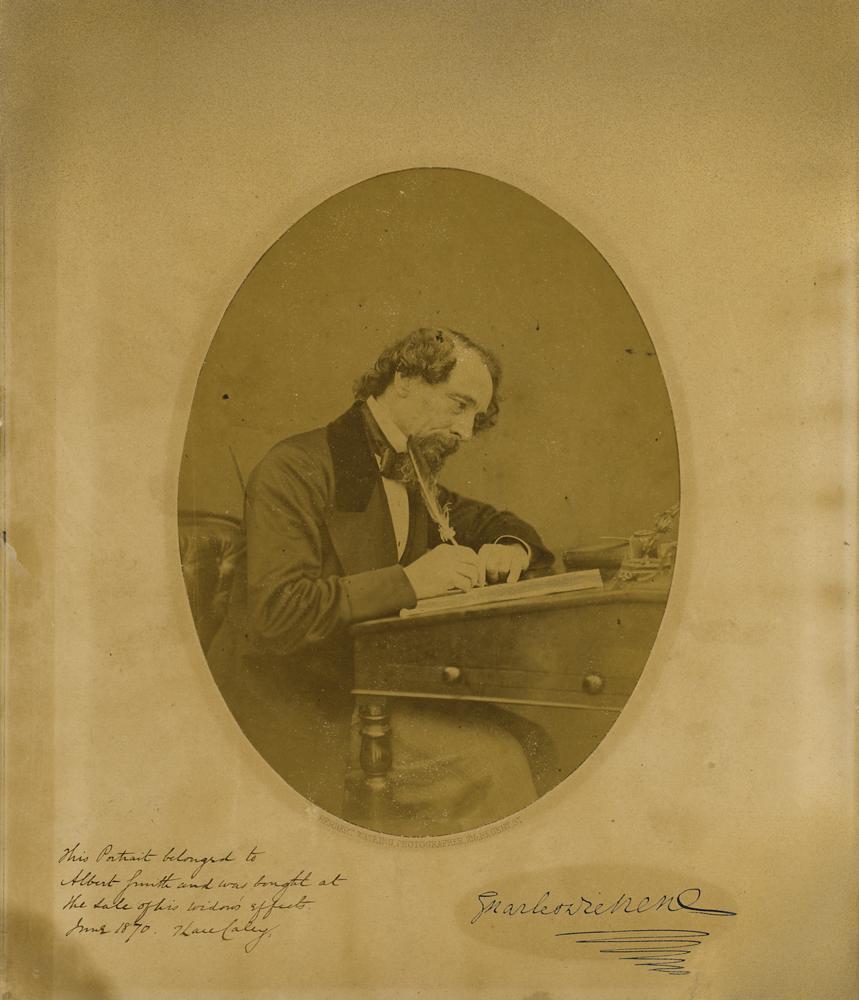 HERBERT WATKINS, PHOTOGRAPHER, 215 REGENT ST
This Portrait belonged to
Albert Smith and was bought at
the sale of his widows effects
June 1870.
Charles Dickens